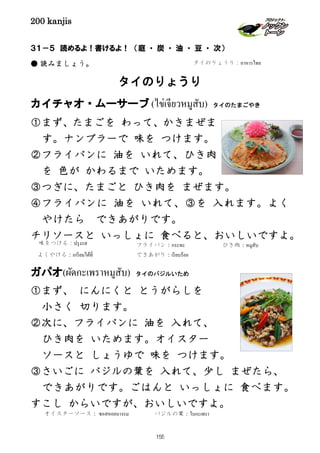 200 kanjis
プロジェクト
３１－５ 読めるよ！書けるよ！（庭・炭・油・豆・次）
● 読みましょう。
タイのりょうり：อาหารไทย
タイのりょうり
カイチャオ・ムーサープ (ไข่เจียวหมูสับ) タイのたまごやき
①まず、たまごを わって、かきまぜま
す。ナンプラーで 味を つけます。
②フライパンに 油を いれて、ひき肉
を 色が かわるまで いためます。
③つぎに、たまごと ひき肉を まぜます。
④フライパンに 油を いれて、③を 入れます。よく
やけたら できあがりです。
チリソースと いっしょに 食べると、おいしいですよ。
味をつける：ปรุงรส フライパン：กระทะ ひき肉：หมูสับ
よくやける：เกรียมได้ที่ できあがり：เรียบร้อย
ガパオ(ผัดกะเพราหมูสับ) タイのバジルいため
①まず、 にんにくと とうがらしを
小さく 切ります。
②次に、フライパンに 油を 入れて、
ひき肉を いためます。オイスター
ソースと しょうゆで 味を つけます。
③さいごに バジルの葉を 入れて、少し まぜたら、
できあがりです。ごはんと いっしょに 食べます。
すこし からいですが、おいしいですよ。
オイスターソース：ซอสหอยนางรม バジルの葉：ใบกะเพรา
155